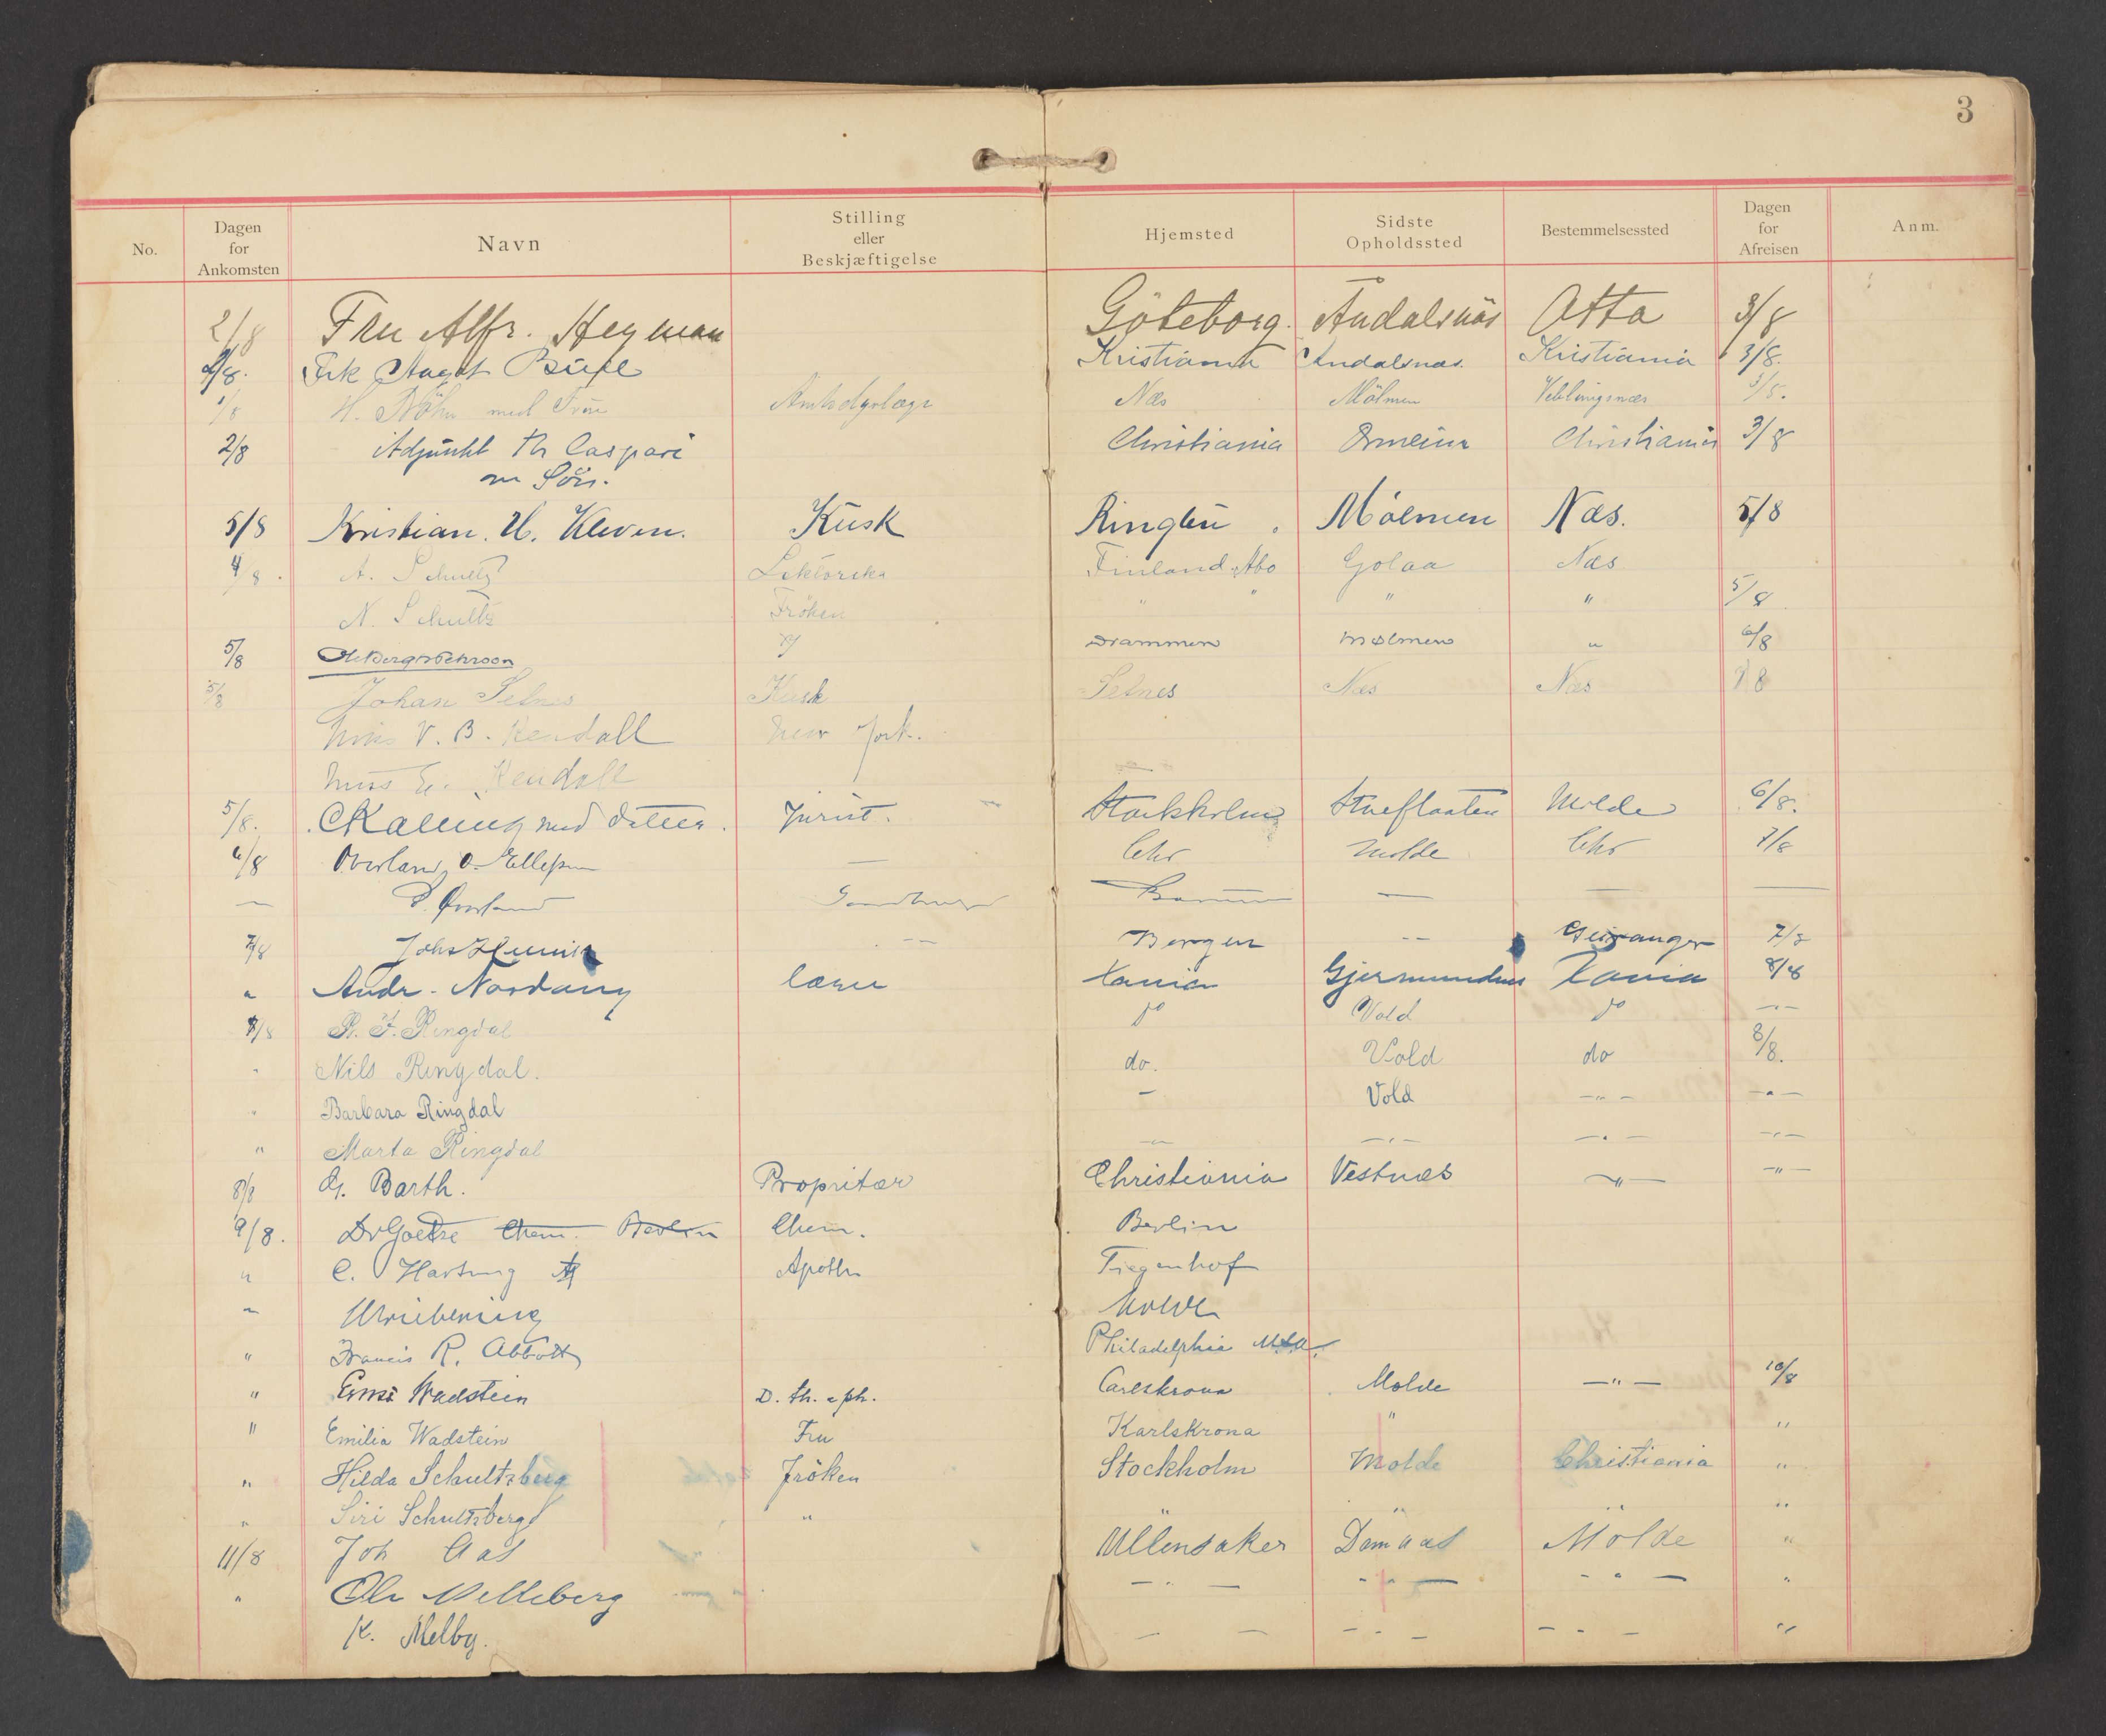 3
No. Dagen for Ankomsten Navn Stilling eller Beskjæftigelse Hjemsted Sidste Opholdssted Bestemmelsessted Dagen for Afreisen Anm.
2/8 Fru Alfr. Heyman Göteborg. Åndalsnäs Otta 3/8
2/8. Frk Aagot Kristiania Andalsnæs. Kristiania 3/8.
1/8 H. med Frue Næs Mölmen Veblungsnæs 3/8.
2/8 Adjunkt Th Caspari Christiania Ormeim Christiania 3/8
m Sön.
5/8 Kristian. H. Kleven. Kusk Ringbu. Mölmen Næs. 5/8
4/8. A. Schultz Finland. Åbo Golaa Næs
N. Schultz Fröken " " " " 5/8
5/8 Drammen Mölmen " 6/8
5/8 Johan Setnes Kusk Setnes Næs Næs 8
Miss V. B. Kendall New York.
Miss E. Kendall
5/8. med datter. Jurist. Stockholm Stueflaaten Molde 6/8.
6/8 Øverland, O. Ellefsen — Chr Molde Chr 7/8
— Øverland — — —
7/8 Johs -- Bergen -- Geiranger 7/8
" Andr. Nordang lærer Gjermundnes 8/8
8/8 R. F. Ringdal do Vold do -"-
" Nils Ringdal. do. Vold do 8/8.
" Barbara Ringdal — Vold -"- -"-
" Marta Ringdal -"- -"- -"- -"-
8/8 G. Barth. Propritær Christiania Vestnæs -"- -"-
9/8. Dr Goetze Chem. Berlin Chem. Berlin
" C. Hartung Apoth Tiegenhof
" Molde
" Francis R. Abbott Philadelphia U.S.A.
" Ernst Wadstein D. th. & ph. Carlskrona Molde -"- 10/8
" Emilia Wadstein Fru Karlskrona " "
" Hilda Schultzberg Fröken Stockholm Molde Christiania "
" Siri Schultzberg " " " "
11/8 Joh Aas Ullensaker Domaas Molde "
" Ole Melleberg -"- -"- -"- "
K. Melby. — — - - - - - - "